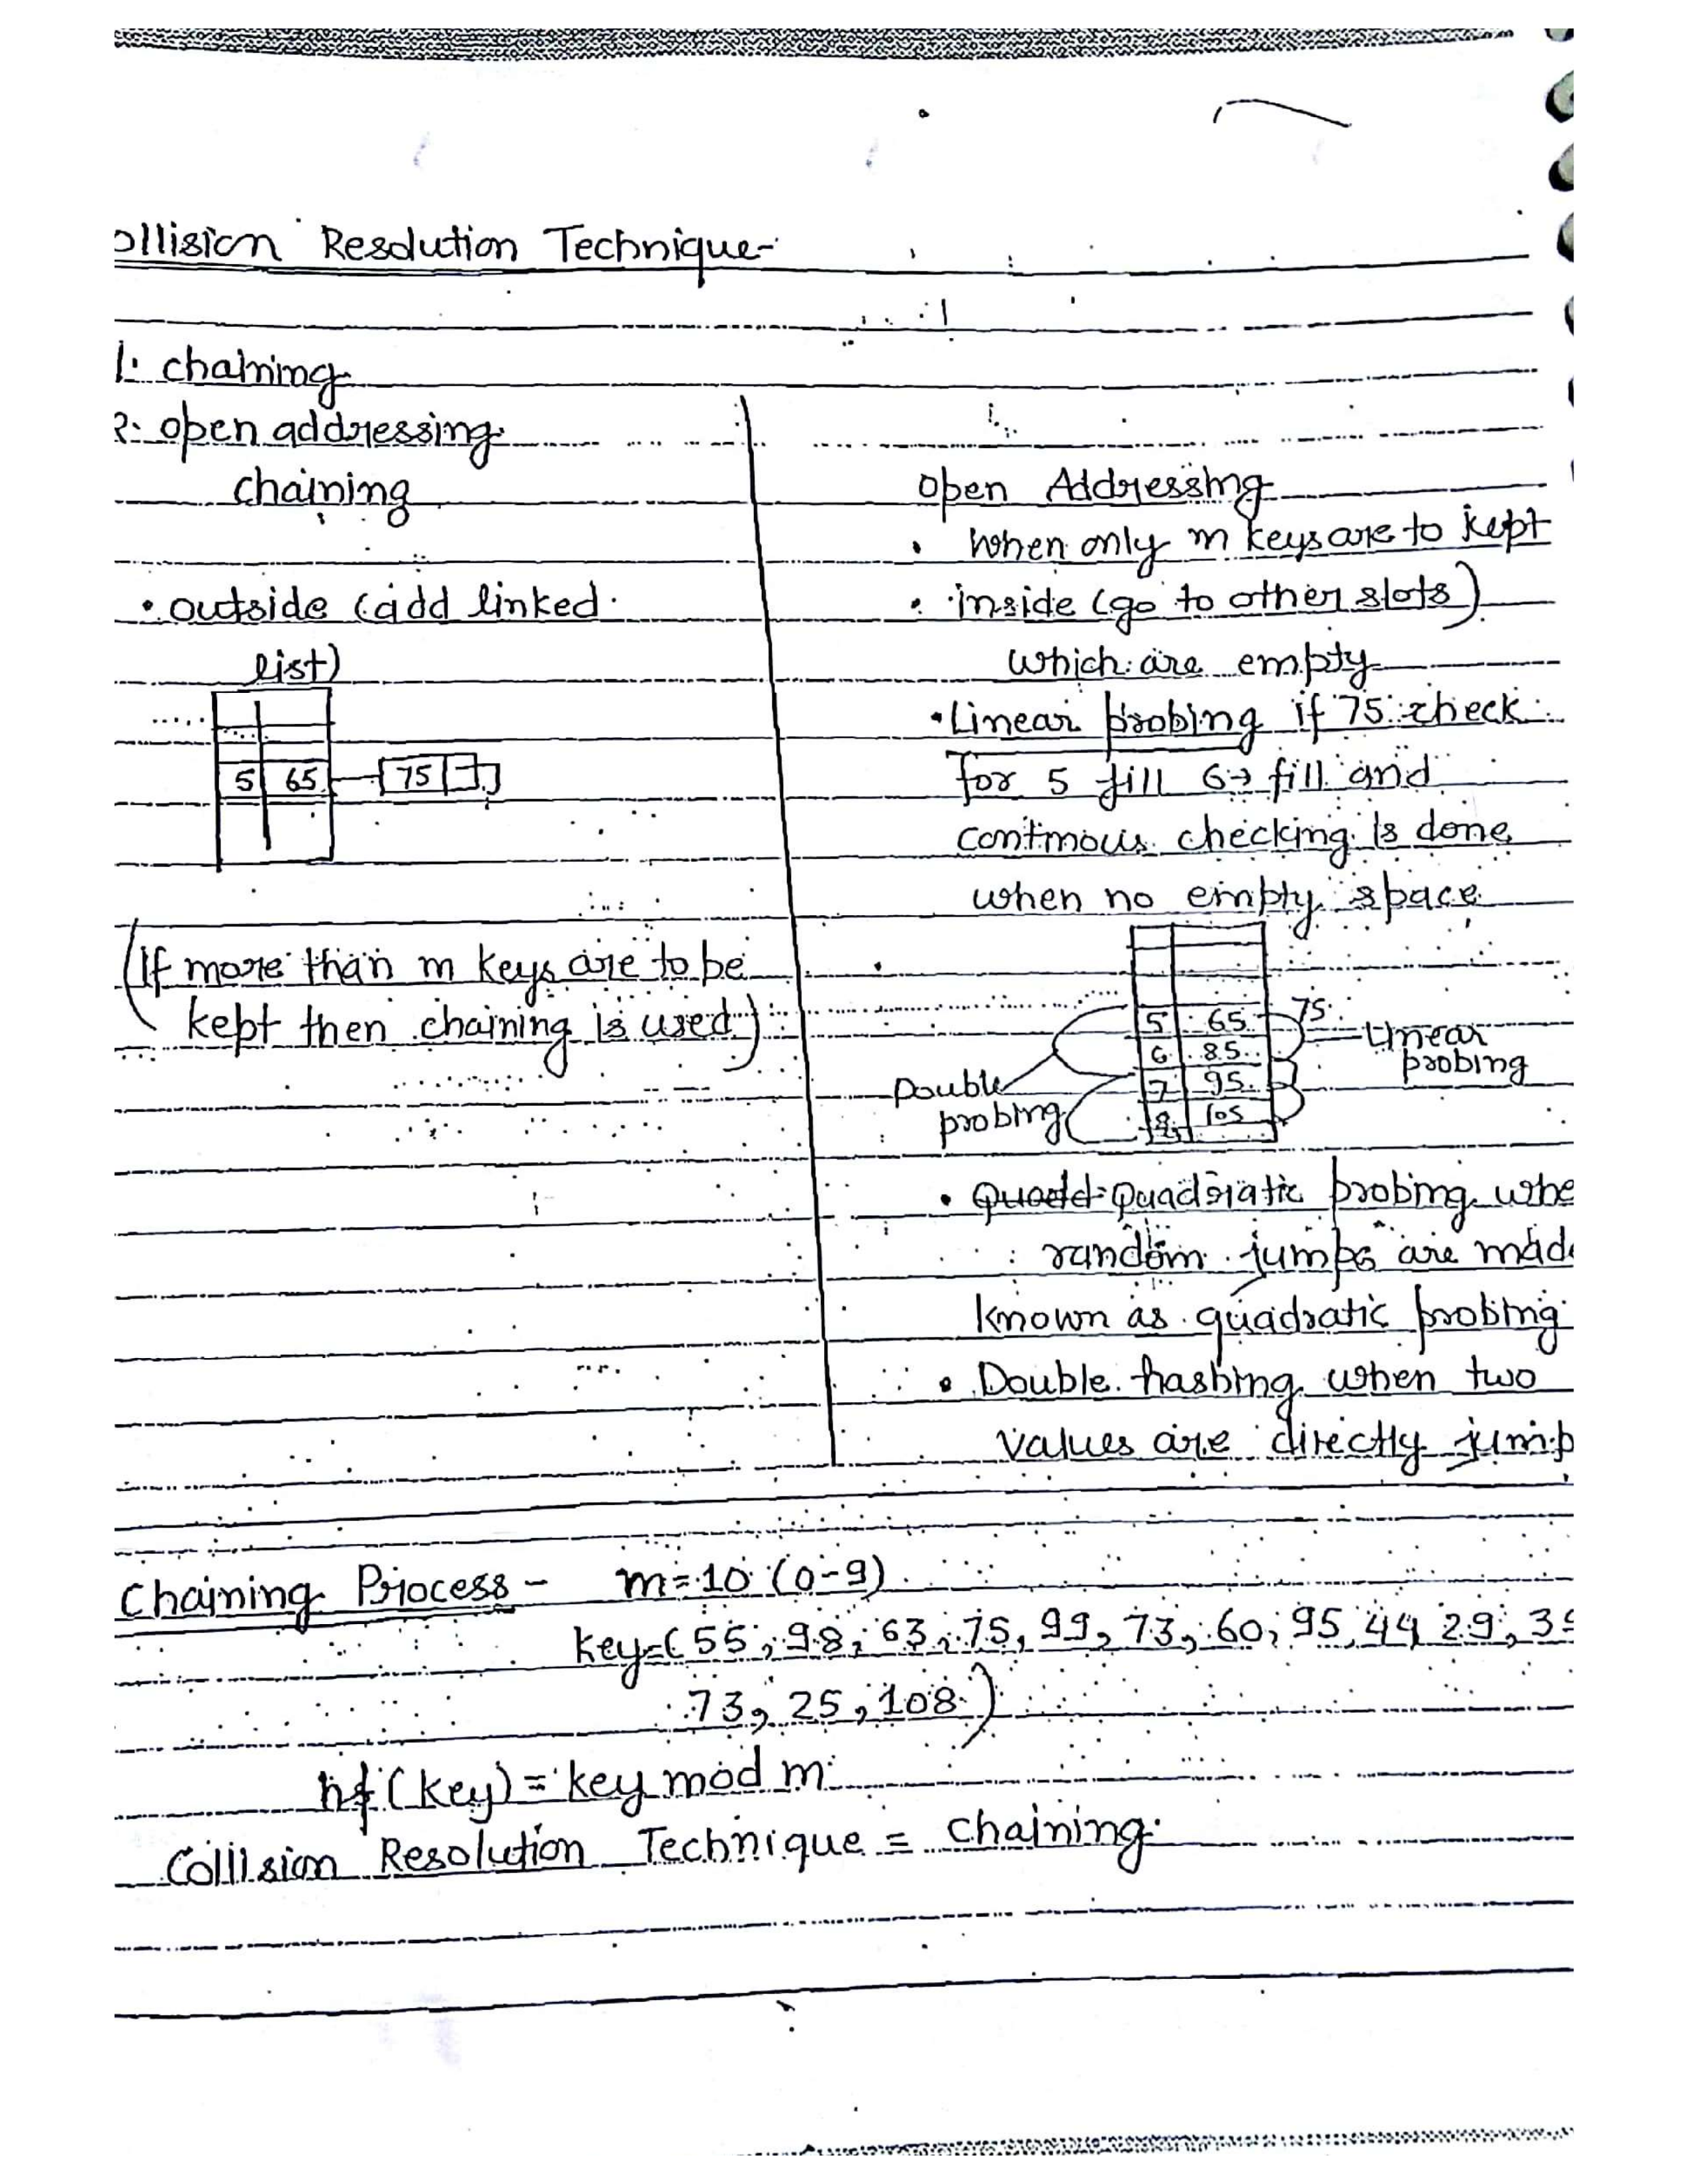 ollision Resolution Technique-
1. chaining
2. open addressing
chaining
• outside (add linked
list)
5 65 75
(If more than m keys are to be
kept then chaining is used)
open Addressing
• when only m keys are to kept
• inside (go to other slots)
which are empty
• Linear probing if 75 check
for 5 fill 6→ fill and
continous checking is done
when no empty space
5 65 75
6 85
7 95
8 105
Linear
probing
Double
probing
• Quadratic probing whe
random jumps are made
known as quadratic probing
• Double hashing when two
values are directly jump
Chaining Process - m=10 (0-9)
key=(55, 98, 63, 75, 99, 73, 60, 95, 44 29, 3
73, 25, 108)
hf(key) = key mod m
Collision Resolution Technique = chaining